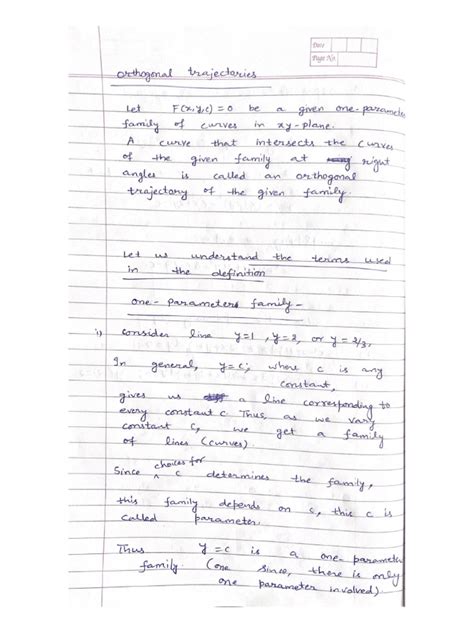 Date
Page No.
Orthogonal trajectories
Let F(x,y,c)=0 be a given one-parameter
family of curves in xy-plane.
A curve that intersects the curves
of the given family at right
angles is called an orthogonal
trajectory of the given family.
Let us understand the terms used
in the definition
one-parameters family-
i) Consider line y=1, y=2, or y=2/3.
In general, y=c; where c is any
constant,
gives us a line corresponding to
every constant c Thus, as we vary
constant c, we get a family
of lines (curves).
choices for
Since ^ c determines the family,
this family depends on c, this c is
called parameter.
Thus y=c is a one-parameter
family. (one since, there is only
one parameter involved).